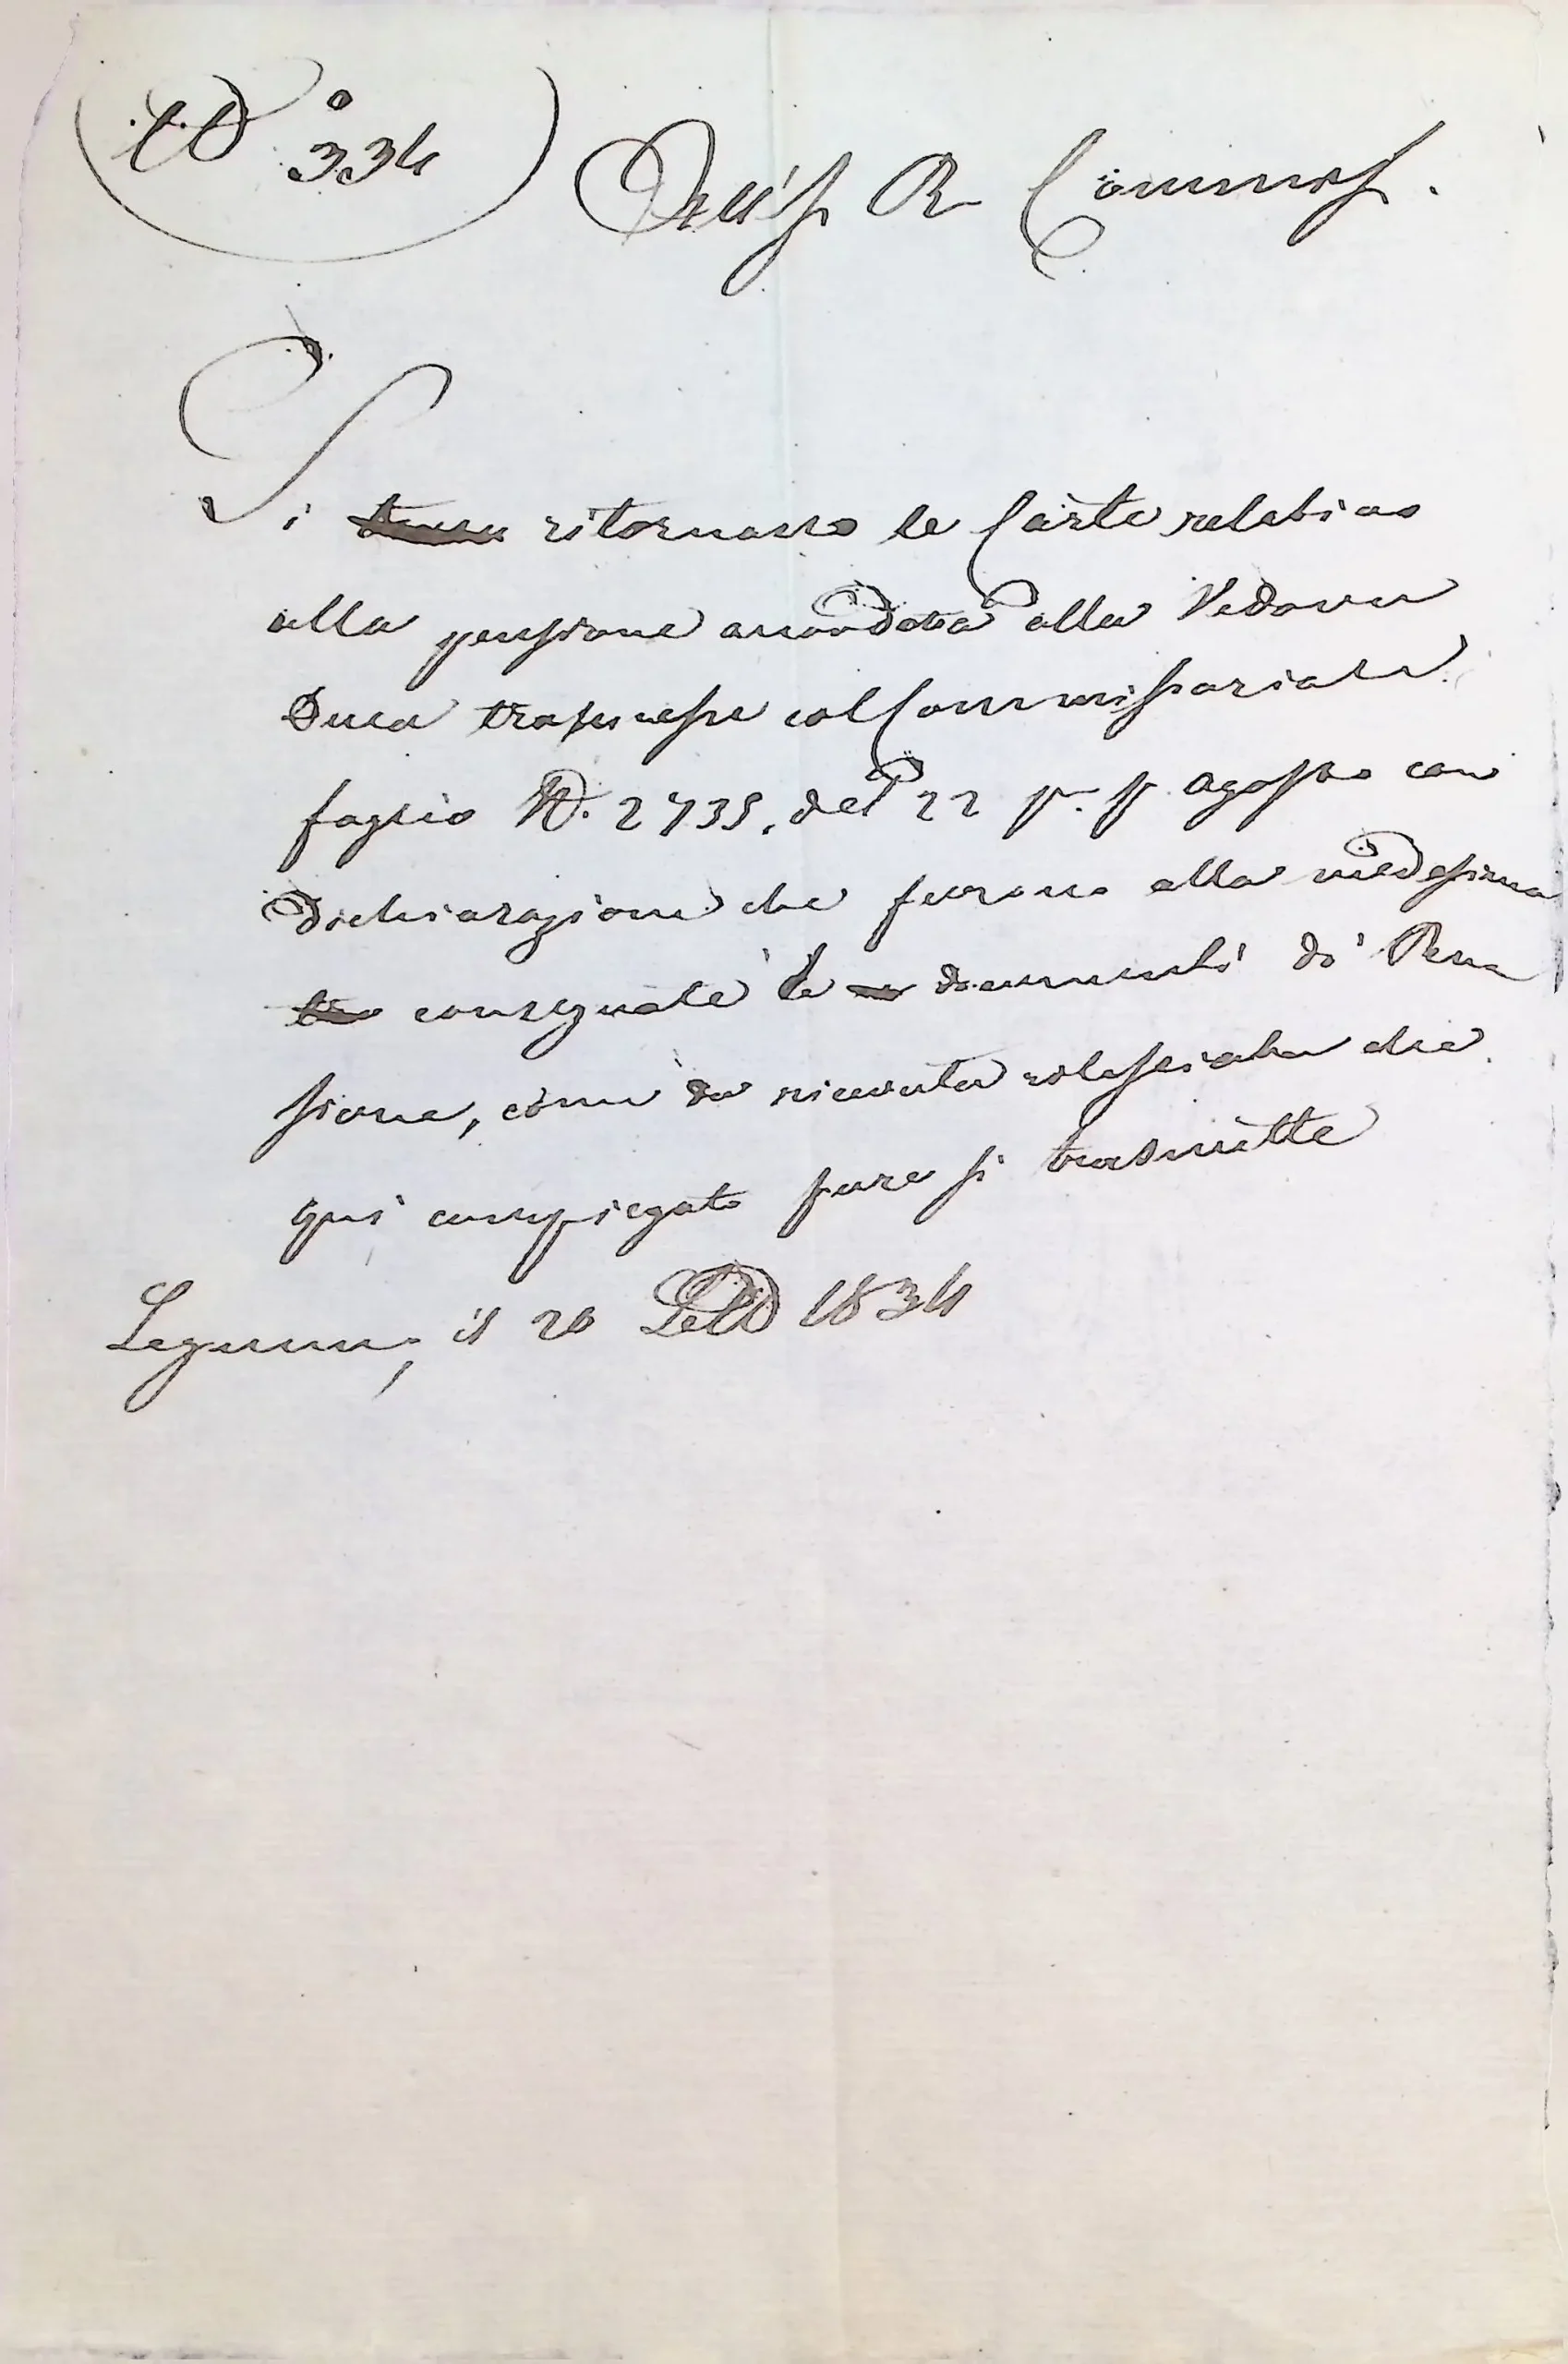 N.° 334
All'I. R. Commiss.
Si ritornano le Carte relative
alla pensione accordata alla Vedova
Duca trasmesse col Commissariale
foglio N. 2735. del 22 p. p. Agosto con
Dichiarazione che furono alla medesima
consegnate le documenti di Pen
sione, come da ricevuta rilasciata che
qui compiegato pure si trasmette
il 26 Sett 1834